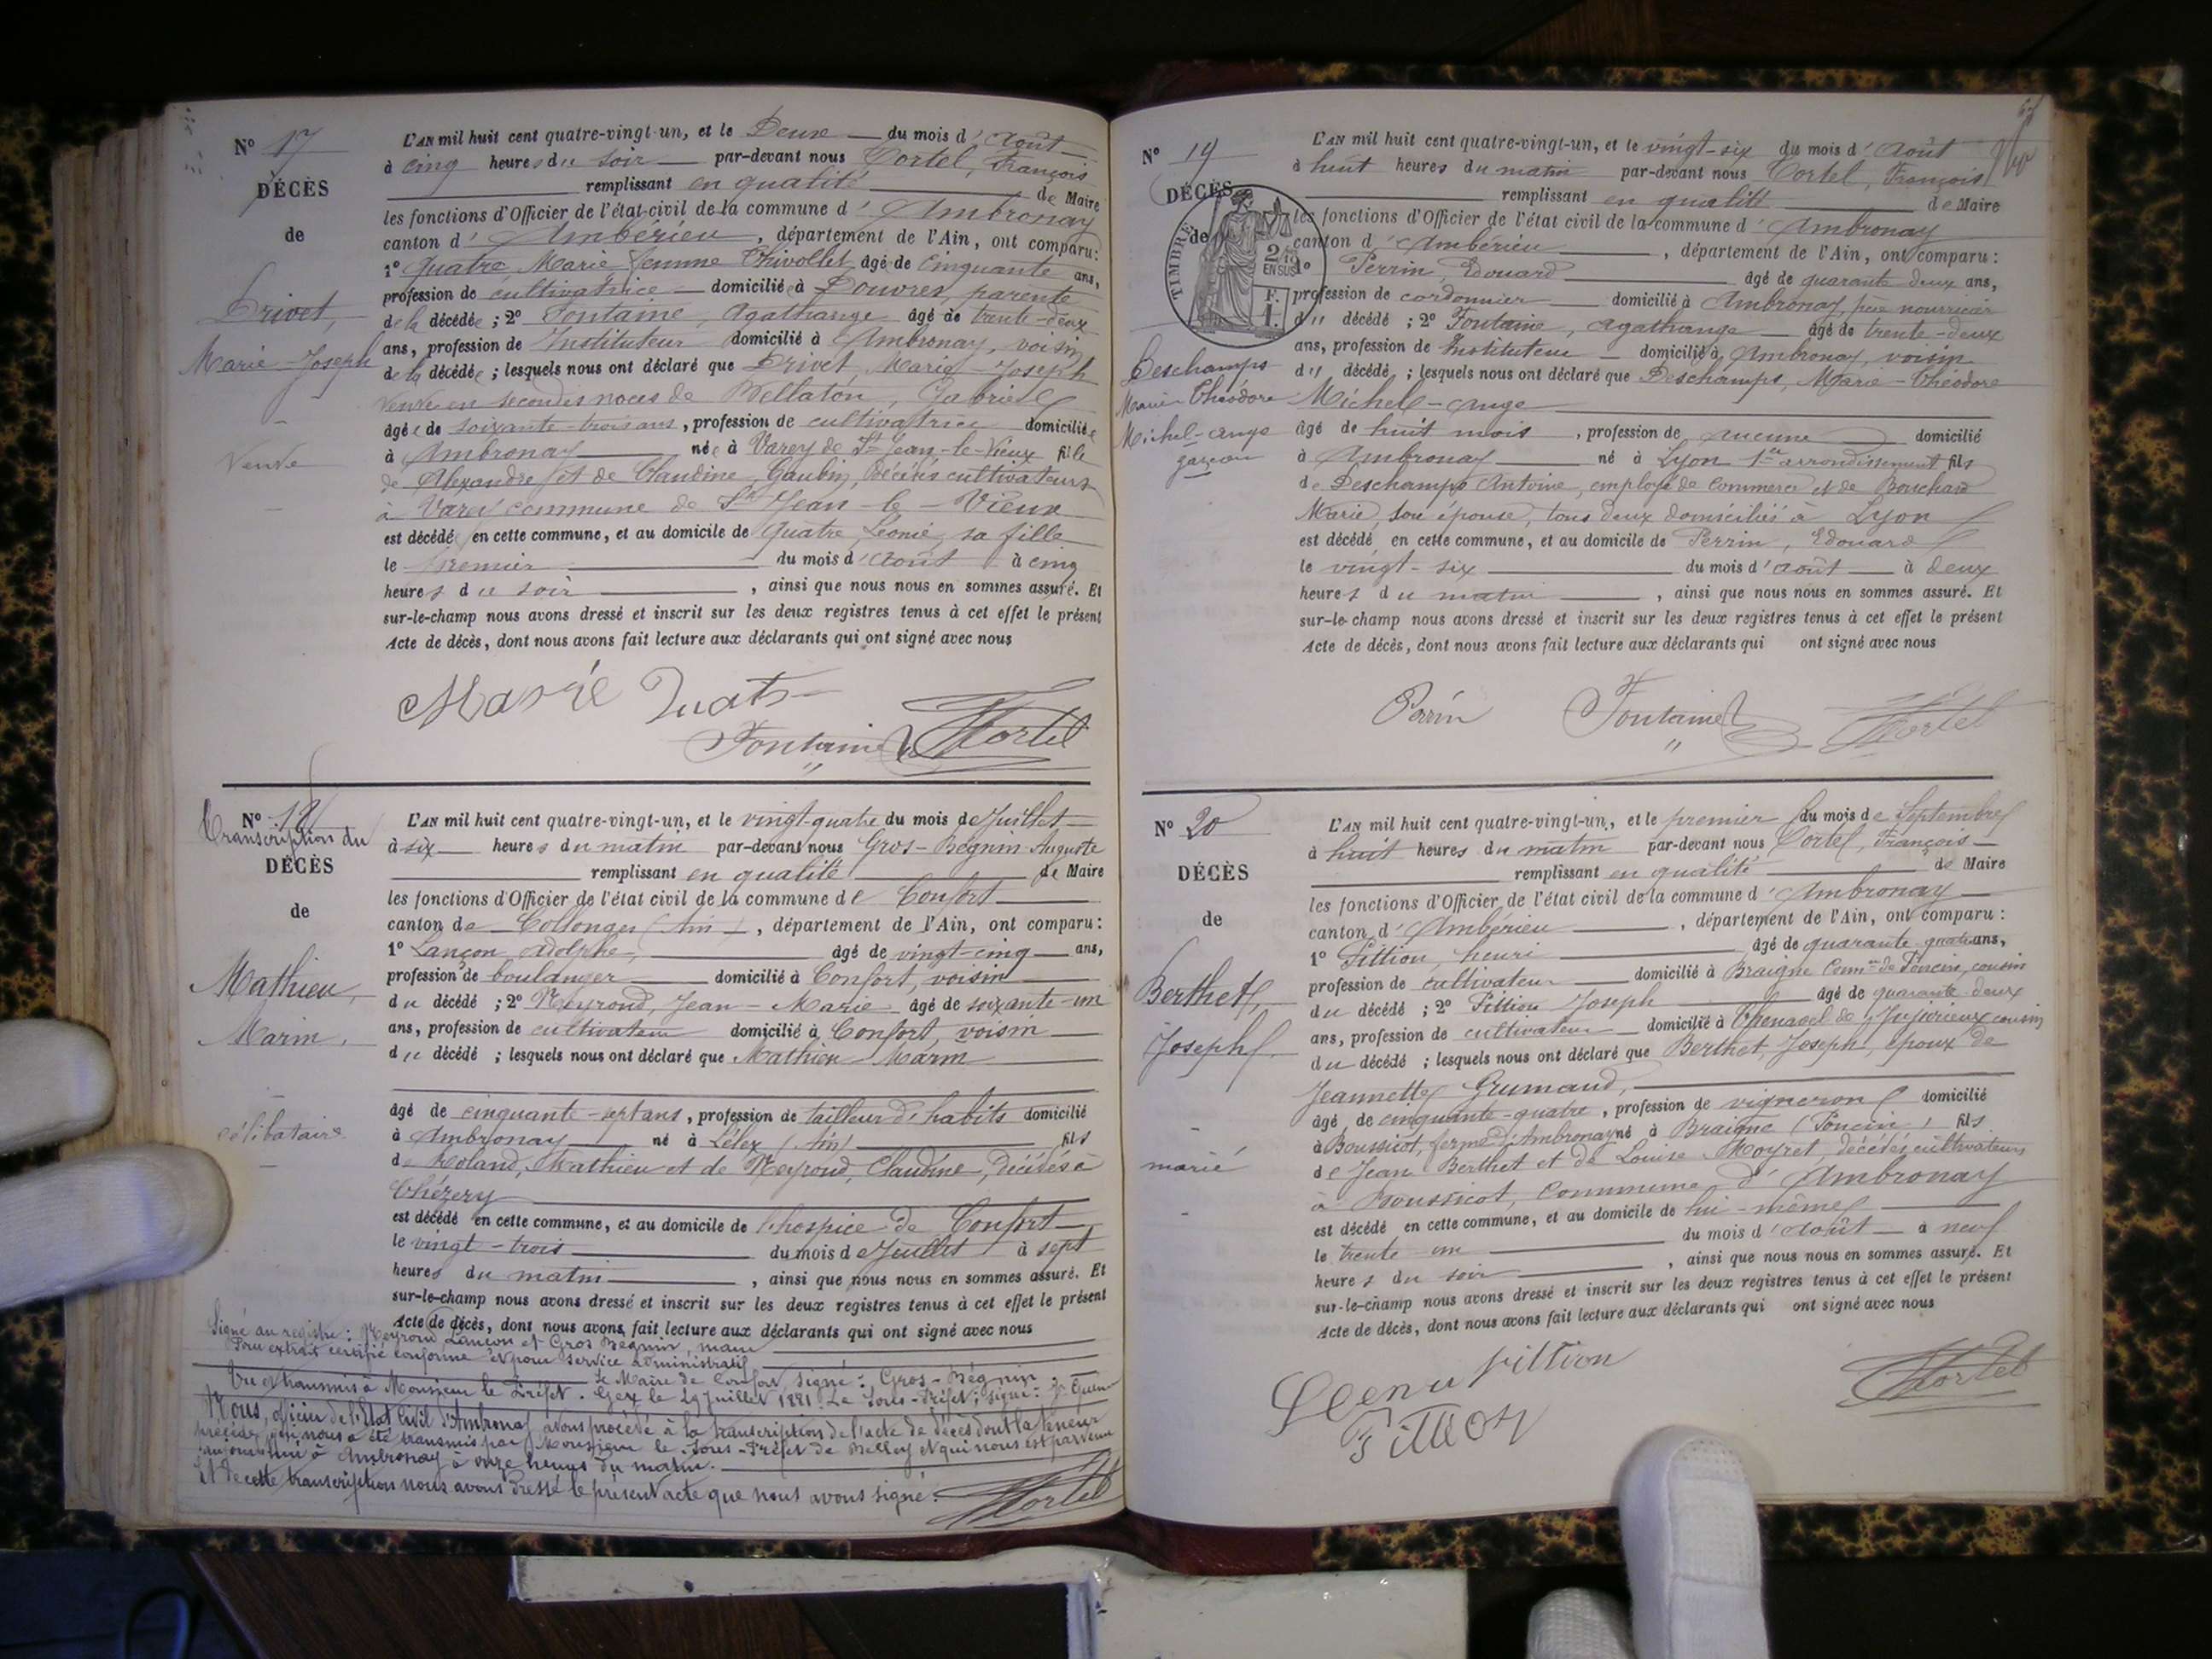 N° 17
DÉCÈS
de
Drivet,
Marie-Joseph
Veuve
L'AN mil huit cent quatre-vingt-un, et le Deux du mois d'Août
à cinq heures du soir par-devant nous Tortel, François
remplissant en qualité de Maire
les fonctions d'Officier de l'état-civil de la commune d'Ambronay
canton d'Ambérieu, département de l'Ain, ont comparu:
1° Quatre, Marie femme Chivollet âgé de Cinquante ans,
profession de cultivatrice domiciliée à Douvres, parente
de la décédée ; 2° Fontaine, Agathange âgé de trente-deux
ans, profession de Instituteur domicilié à Ambronay, voisin
de la décédée ; lesquels nous ont déclaré que Drivet Marie-Joseph
Veuve en secondes noces de Bellaton, Gabriel
âgée de soixante-trois ans, profession de cultivatrice domiciliée
à Ambronay née à Varey de St Jean-le-Vieux fille
de Alexandre et de Claudine Gaubin, décédés cultivateurs
à Varey commune de St Jean-le-Vieux
est décédé en cette commune, et au domicile de Quatre Léonie, sa fille
le premier du mois d'Août à cinq
heures du soir, ainsi que nous nous en sommes assuré. Et
sur-le-champ nous avons dressé et inscrit sur les deux registres tenus à cet effet le présent
Acte de décès, dont nous avons fait lecture aux déclarants qui ont signé avec nous
Marie Quatr
Fontaine Tortel
N° 18
Transcription du
DÉCÈS
de
Mathieu,
Marin,
célibataire
L'AN mil huit cent quatre-vingt-un, et le vingt-quatre du mois de Juillet
à six heures du matin par-devant nous Gros-Bégnin Auguste
remplissant en qualité de Maire
les fonctions d'Officier de l'état civil de la commune de Confort
canton de Collonges (Ain), département de l'Ain, ont comparu:
1° Lançon, Adolphe, âgé de vingt-cinq ans,
profession de boulanger domicilié à Confort, voisin
du décédé ; 2° Meyrond, Jean-Marie âgé de soixante-un
ans, profession de cultivateur domicilié à Confort, voisin
du décédé ; lesquels nous ont déclaré que Mathieu Marin
âgé de cinquante-sept ans, profession de tailleur d'habits domicilié
à Ambronay né à Lélex (Ain) fils
de Roland, Mathieu et de Meyrond, Claudine, décédés à
Chézery
est décédé en cette commune, et au domicile de l'hospice de Confort
le vingt-trois du mois de Juillet à sept
heures du matin, ainsi que nous nous en sommes assuré. Et
sur-le-champ nous avons dressé et inscrit sur les deux registres tenus à cet effet le présent
Acte de décès, dont nous avons fait lecture aux déclarants qui ont signé avec nous
Signé au registre : Meyrond, Lançon et Gros Bégnin, maire
Pour extrait certifié conforme et pour service administratif
Le Maire de Confort, signé : Gros-Bégnin
Vu et transmis à Monsieur le Préfet. Gex le 29 Juillet 1881. Le Sous-Préfet, signé :
Nous, officier de l'Etat Civil d'Ambronay avons procédé à la transcription de l'acte de décès dont la teneur
précède, qui nous a été transmis par Monsieur le Sous-Préfet de Belley et qui nous est parvenu
à Ambronay à onze heures du matin.
Et de cette transcription nous avons dressé le présent acte que nous avons signé.
Tortel
N° 19
DÉCÈS
de
TIMBRE
2/10
EN SUS
F.
1.
Deschamps
Marie Théodore
Michel-Ange
garçon
L'AN mil huit cent quatre-vingt-un, et le vingt-six du mois d'Août
à huit heures du matin par-devant nous Tortel, François
remplissant en qualité de Maire
les fonctions d'Officier de l'état civil de la commune d'Ambronay
canton d'Ambérieu, département de l'Ain, ont comparu:
1° Perrin, Edouard âgé de quarante-deux ans,
profession de cordonnier domicilié à Ambronay, père nourricier
du décédé ; 2° Fontaine, Agathange âgé de trente-deux
ans, profession de Instituteur domicilié à Ambronay, voisin
du décédé ; lesquels nous ont déclaré que Deschamps, Marie-Théodore
Michel-Ange
âgé de huit mois, profession de aucune domicilié
à Ambronay né à Lyon 1er arrondissement fils
de Deschamps Antoine, employé de Commerce et de Bouchard
Marie, son épouse, tous deux domiciliés à Lyon
est décédé en cette commune, et au domicile de Perrin, Edouard
le vingt-six du mois d'août à deux
heures du matin, ainsi que nous nous en sommes assuré. Et
sur-le-champ nous avons dressé et inscrit sur les deux registres tenus à cet effet le présent
Acte de décès, dont nous avons fait lecture aux déclarants qui ont signé avec nous
Perrin Fontaine Tortel
N° 20
DÉCÈS
de
Berthet,
Joseph
marié
L'AN mil huit cent quatre-vingt-un, et le premier du mois de Septembre
à huit heures du matin par-devant nous Tortel, François
remplissant en qualité de Maire
les fonctions d'Officier de l'état civil de la commune d'Ambronay
canton d'Ambérieu, département de l'Ain, ont comparu:
1° Pittion, henri âgé de quarante-quatre ans,
profession de cultivateur domicilié à Braigne Comne de Poncin, cousin
du décédé ; 2° Pittion Joseph âgé de quarante-deux
ans, profession de cultivateur domicilié à Chenavel de Jujurieux cousin
du décédé ; lesquels nous ont déclaré que Berthet, Joseph, époux de
Jeannette Grumaud,
âgé de cinquante-quatre, profession de vigneron domicilié
à Boussicot, ferme d'Ambronay né à Braigne (Poncin) fils
de Jean Berthet et de Louise Moyret, décédés cultivateurs
à Boussicot, Commune d'Ambronay
est décédé en cette commune, et au domicile de lui-même
le trente-un du mois d'Août à neuf
heures du soir, ainsi que nous nous en sommes assuré. Et
sur-le-champ nous avons dressé et inscrit sur les deux registres tenus à cet effet le présent
Acte de décès, dont nous avons fait lecture aux déclarants qui ont signé avec nous
pittion
Pittion
Tortel